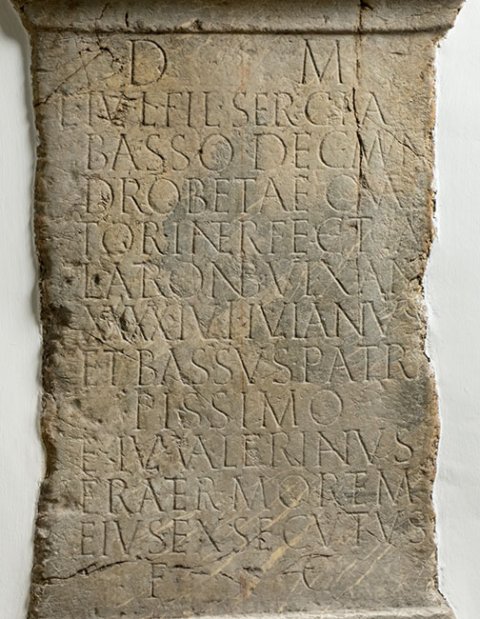 D M
L IVL FIL SERGIA
BASSO DEC MVN
DROBETAE QVAE
TORI INTERFECT A
LATRONB VIX AN
IVL IVLIANVS
ET BASSVS PATRI
PIISSIMO
E IVL VALERIANVS
FRATER MORTEM
EIVS EXSECVTVS